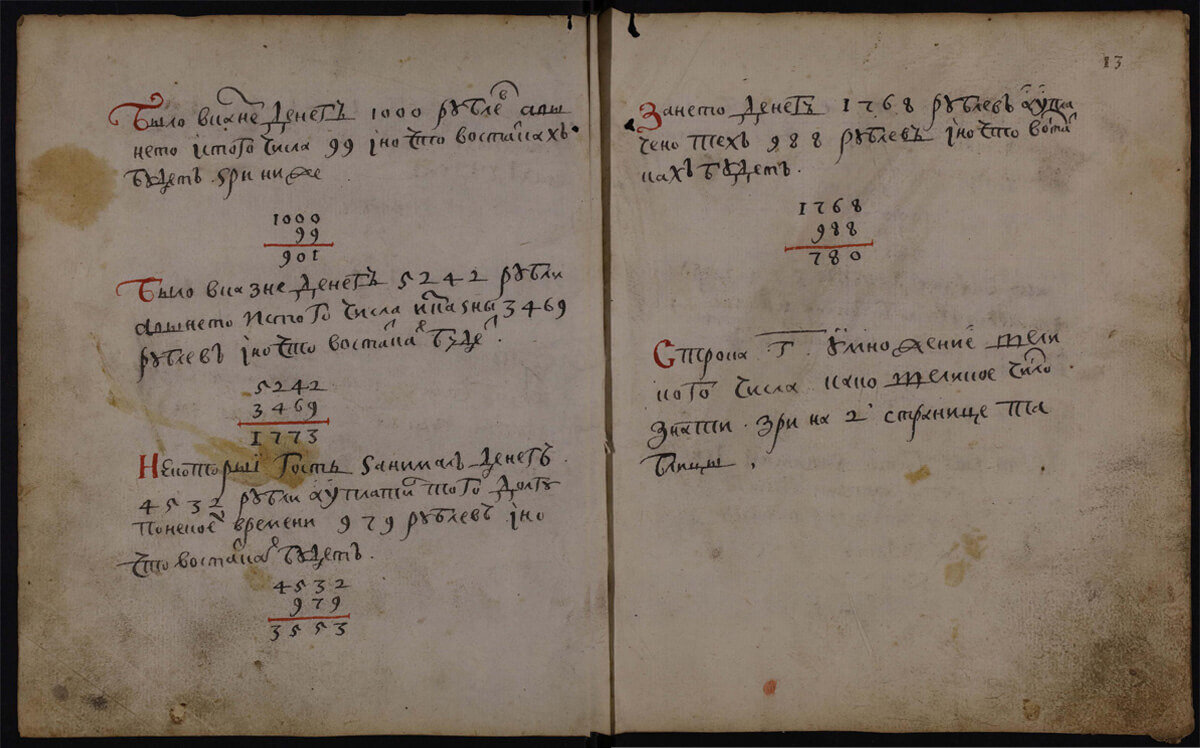 Было вказне денегъ 1000 рублев а вы
нето істого числа 99 іно что востанкахъ
будетъ зри ниже
1000
99
901
Было вказне денегъ 5242 рубли
а вынето истого числа 3469
рублевъ іно что востанках будет.
5242
3469
1773
Некоторыі гость занималъ денегъ.
4532 рубли а уплатил того долгу
понекое времени 979 рублевъ іно
что востанках будетъ.
4532
979
3553
13
Зането денегъ 1768 рублевъ а упла
чено техъ 988 рублевъ іно что востан
кахъ будетъ.
1768
988
780
Строка г умножение вели
кого числа како великое число
знати. зри на 2 странице та
блицы.